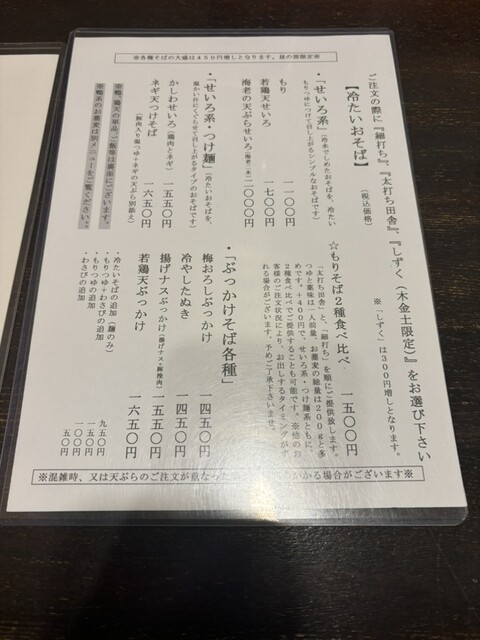 ※各種そばの大盛は４５０円増しとなります。昼の部限定※
ご注文の際に『細打ち』、『太打ち田舎』、『しずく（木金土限定）』をお選び下さい
※『しずく』は３００円増しとなります。
【冷たいおそば】
（税込価格）
・「せいろ系」（冷水でしめたおそばを、冷たい
もりつゆにつけて召し上がるシンプルなおそばです）
もり　１１００円
若鶏天せいろ　１７００円
海老の天ぷらせいろ（海老二本）２０００円
☆もりそば２種食べ比べ　１５００円
「太打ち田舎」と、「細打ち」を順にご提供致します。
つゆと薬味は一人前量、お蕎麦の総量は２００ｇと多
めです。＋４００円で、せいろ系・つけ麺系ともに、
２種食べ比べでご提供することも可能です。※他のお
客様のご注文状況により、お出しするタイミングがず
れる場合がございます。予めご了承下さいませ。
・「せいろ系・つけ麺」（冷たいおそばを、
温かい汁にくぐらせて召し上がるタイプのおそばです）
かしわせいろ（鶏肉とネギ）１５５０円
ネギ天つけそば　１６５０円
（豚肉入り温つゆ・ネギの天ぷら別添え）
・「ぶっかけそば各種」
梅おろしぶっかけ　１４５０円
冷やしたぬき　１４５０円
揚げナスぶっかけ（揚げナス・豚挽肉）１５５０円
若鶏天ぶっかけ　１６５０円
※鴨、鶏天の単品、ご飯等は裏面にございます。
※鴨系のお蕎麦は別メニューをご覧ください。
・冷たいそばの追加（麺のみ）　９５０円
・もりつゆ＋わさびの追加　１５０円
・もりつゆの追加　１００円
・わさびの追加　５０円
※混雑時、又は天ぷらのご注文が重なった
かかる場合がございます※